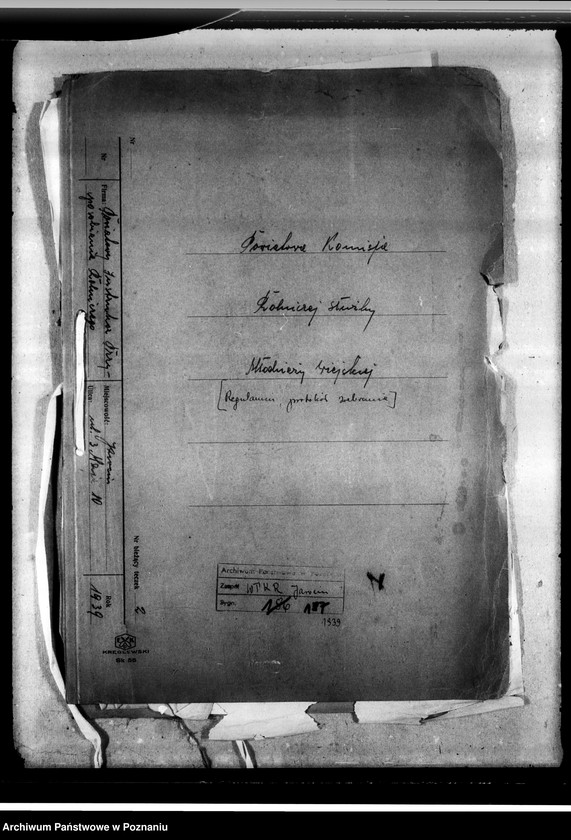 Powiatowa Komisja
Rolniczej służby
Młodzieży wiejskiej
[Regulamin, protokół zebrania]
Nr
Nr
Firma: Powiatowy Instruktor Przy-
sposobienia Rolniczego
Miejscowość: Jarocin
Ulica: ul. 3 Maja 10
Nr bieżący teczek 2
Rok 1939
KREGLEWSKI
Archiwum Państwowe w Poznaniu
Zespół WTKR Jarocin
Sygn. 186 187
1939
Archiwum Państwowe w Poznaniu